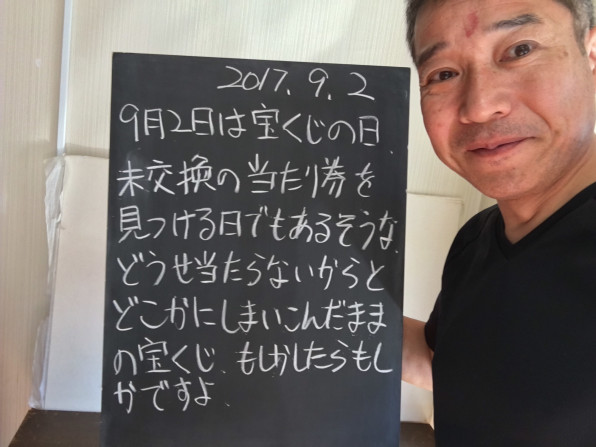 2017.9.2
9月2日は宝くじの日、
未交換の当たり券を
見つける日でもあるそうな、
どうせ当たらないからと
どこかにしまいこんだまま
の宝くじ、もしかしたらもし
かですよ、